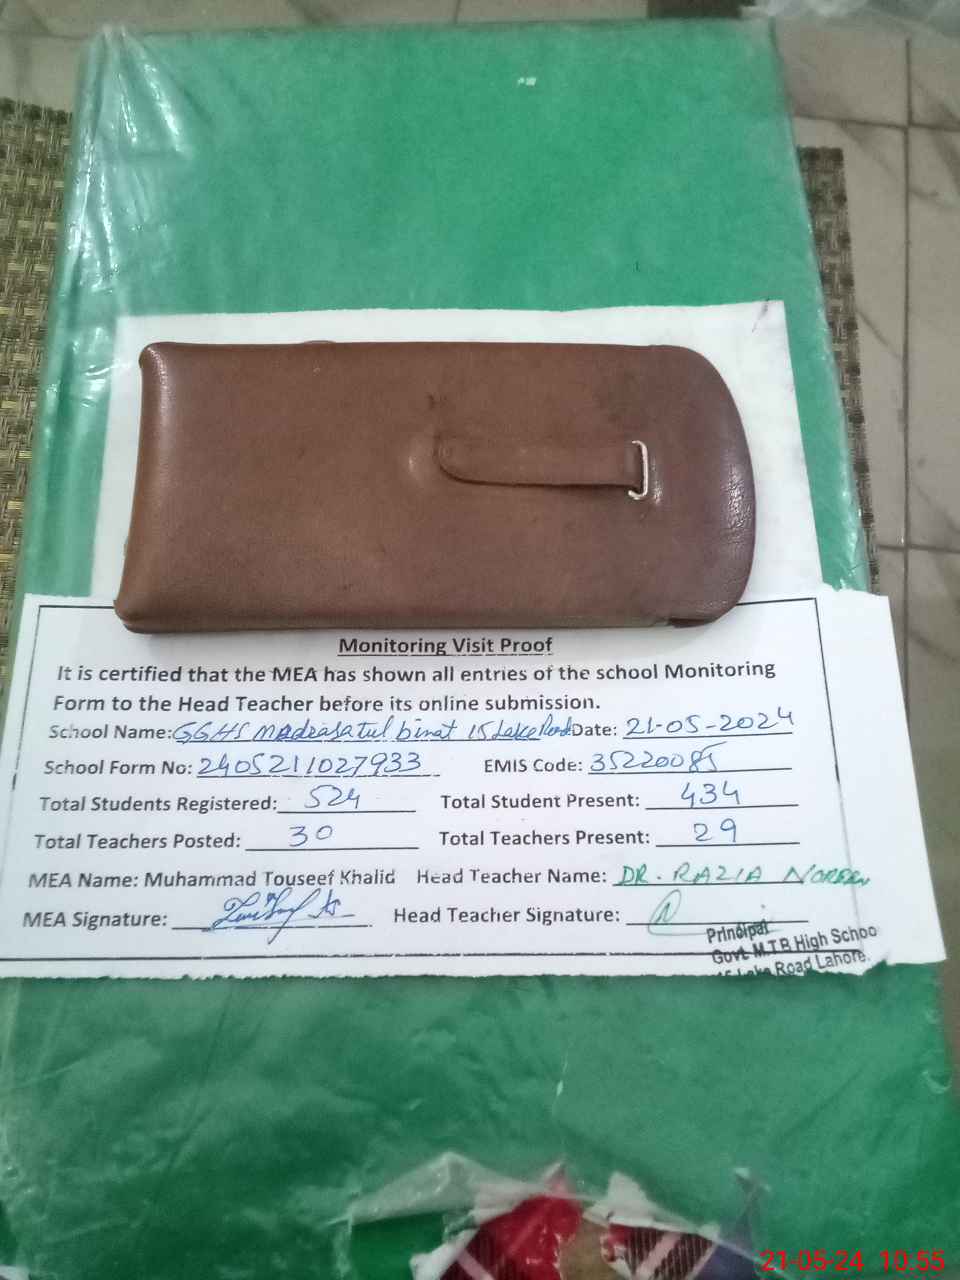 Monitoring Visit Proof
It is certified that the MEA has shown all entries of the school Monitoring
Form to the Head Teacher before its online submission.
School Name: GGHS Madrasatul binat 15 Lake Road Date: 21-05-2024
School Form No: 2405211027933 EMIS Code: 35220085
Total Students Registered: 524 Total Student Present: 434
Total Teachers Posted: 30 Total Teachers Present: 29
MEA Name: Muhammad Touseef Khalid Head Teacher Name: DR. RAZIA NOREEN
MEA Signature: Head Teacher Signature:
Principal
Govt. M.T.B High Schoo
15 Lake Road Lahore.
21-05-24 10:55